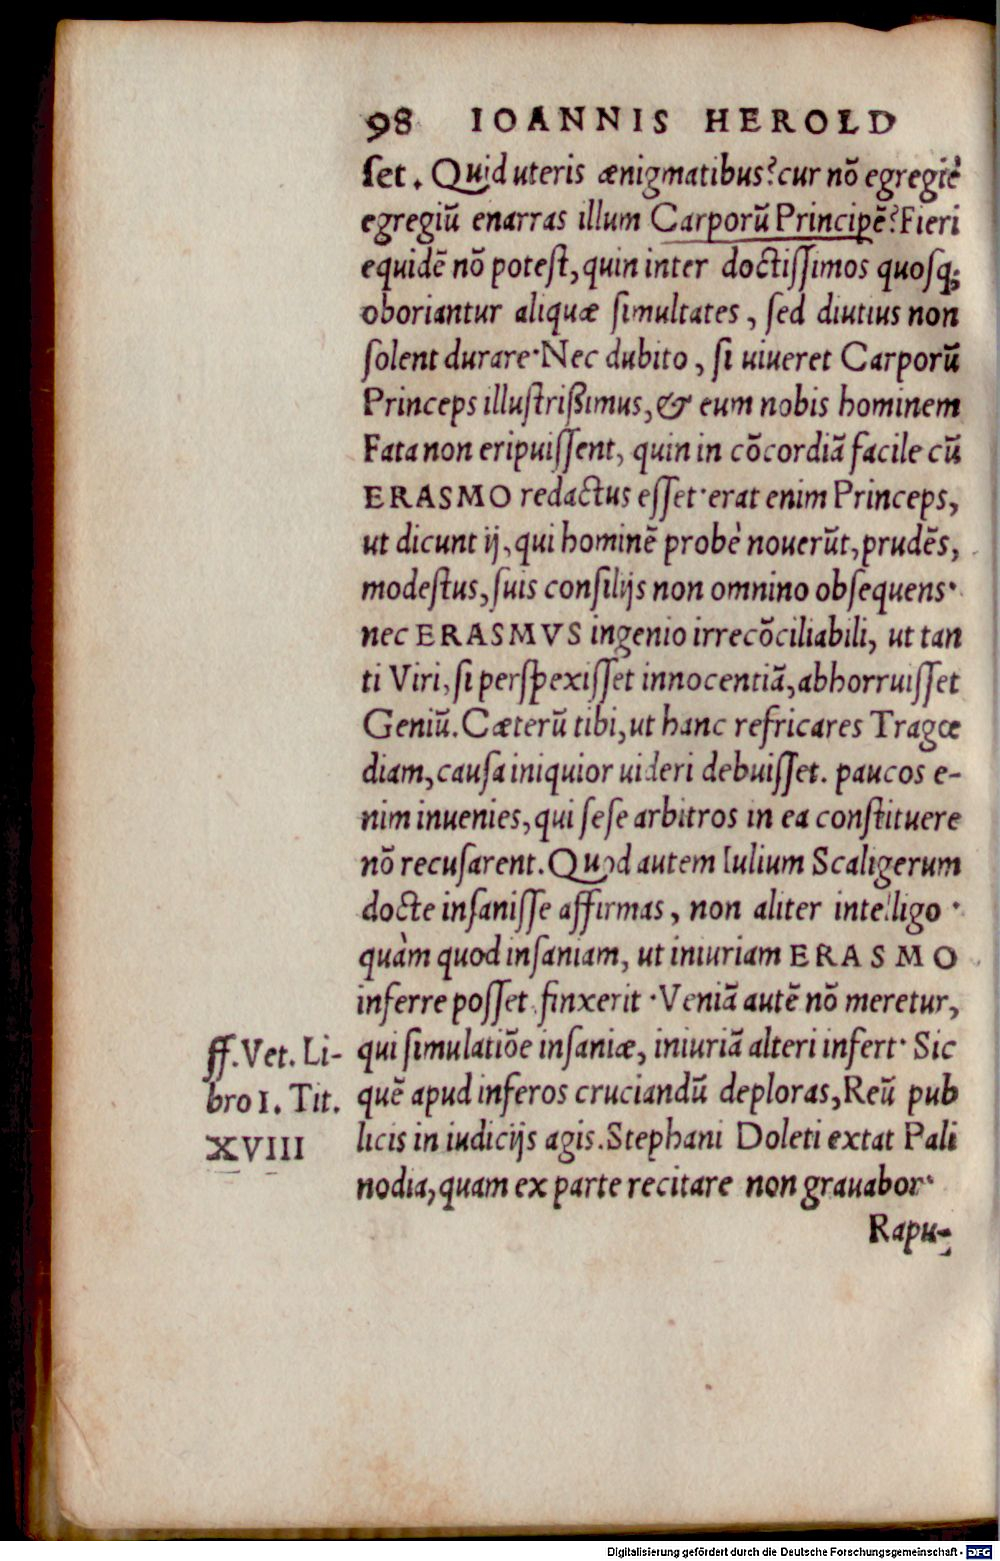 98 IOANNIS HEROLD
ſet. Quid uteris ænigmatibus? cur nõ egregiè
egregiũ enarras illum Carporũ Principẽ? Fieri
equidẽ nõ poteſt, quin inter doctiſſimos quoſq;
oboriantur aliquæ ſimultates, ſed diutius non
ſolent durare. Nec dubito, ſi uiueret Carporũ
Princeps illuſtrißimus, & eum nobis hominem
Fata non eripuiſſent, quin in cõcordiã facile cũ
ERASMO redactus eſſet. erat enim Princeps,
ut dicunt ij, qui hominẽ probè nouerũt, prudẽs,
modeſtus, ſuis conſilijs non omnino obſequens.
nec ERASMVS ingenio irrecõciliabili, ut tan
ti Viri, ſi perſpexiſſet innocentiã, abhorruiſſet
Geniũ. Cæterũ tibi, ut hanc refricares Tragœ
diam, cauſa iniquior uideri debuiſſet. paucos e-
nim inuenies, qui ſeſe arbitros in ea conſtituere
nõ recuſarent. Quod autem Iulium Scaligerum
docte inſaniſſe affirmas, non aliter intelligo.
quàm quod inſaniam, ut iniuriam ERASMO
inferre poſſet finxerit. Veniã autẽ nõ meretur,
ff. Vet. Li-
bro I. Tit.
XVIII
qui ſimulatiõe inſaniæ, iniuriã alteri infert. Sic
quẽ apud inferos cruciandũ deploras, Reũ pub
licis in iudicijs agis. Stephani Doleti extat Pali
nodia, quam ex parte recitare non grauabor.
Rapu-
Digitalisierung gefördert durch die Deutsche Forschungsgemeinschaft - DFG